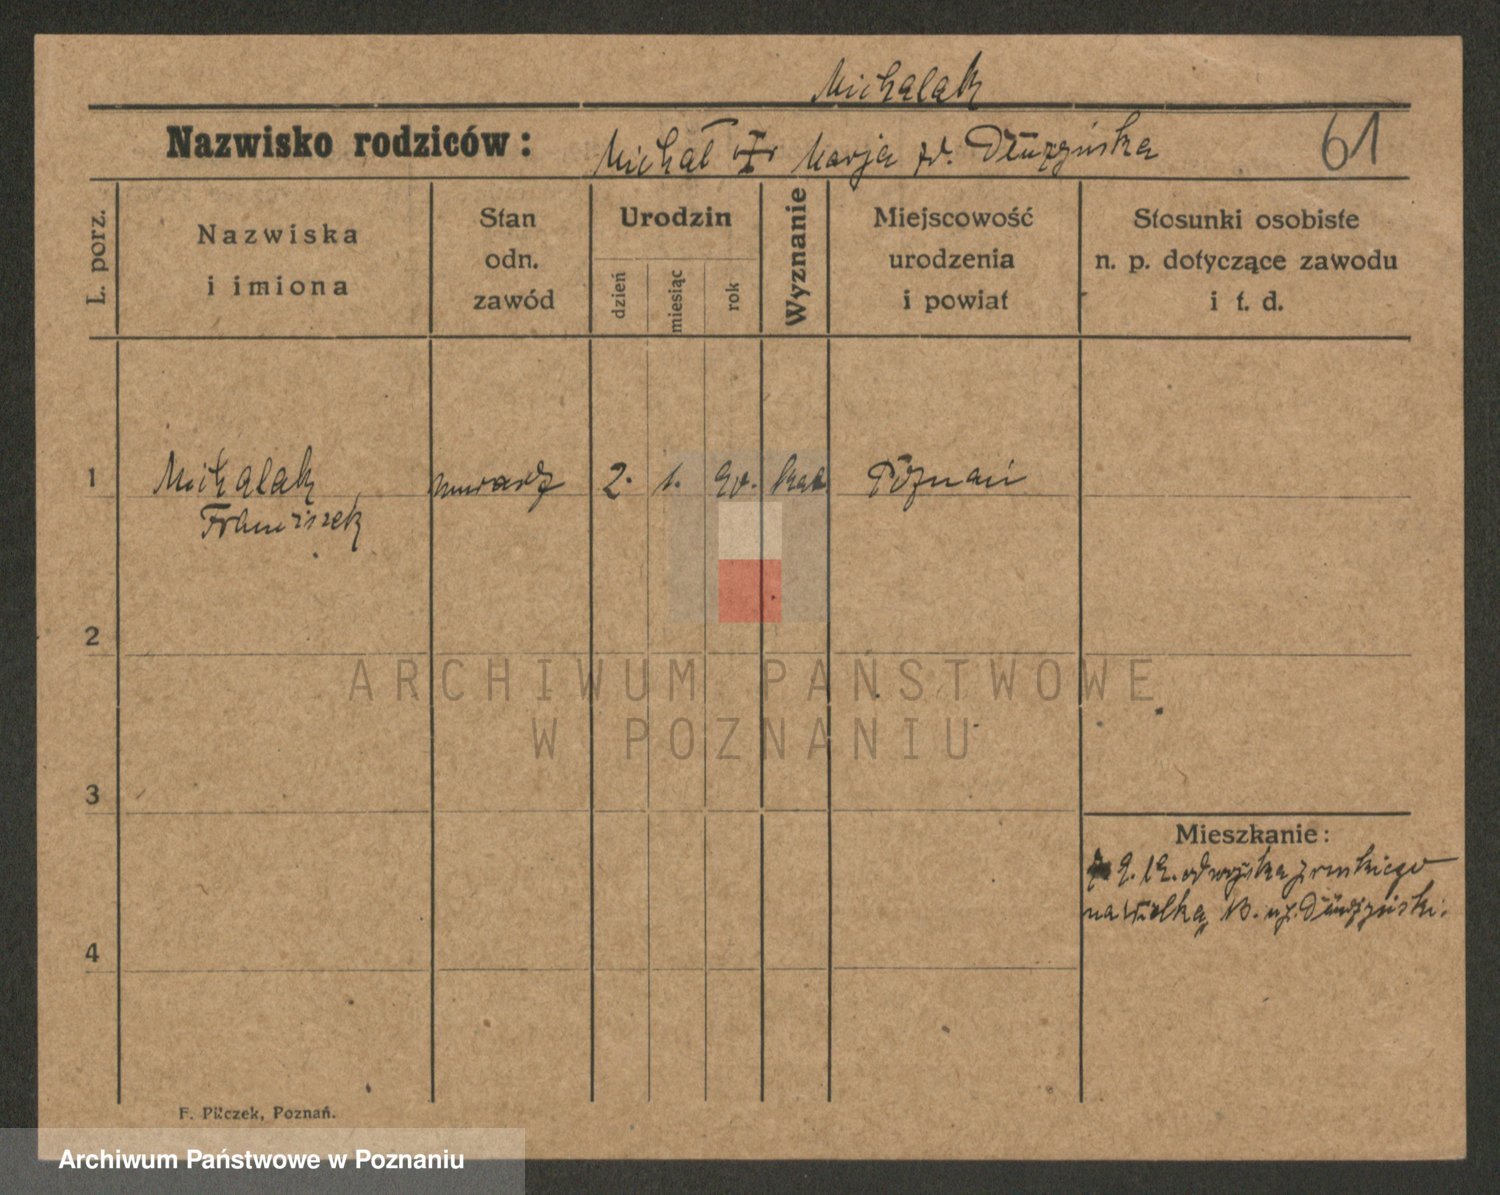 Michalak
Nazwisko rodziców: Michał Marja zd. Dłużyńska 61
L. porz.
Nazwiska
i imiona
Stan
odn.
zawód
Urodzin
dzień
miesiąc
rok
Wyznanie
Miejscowość
urodzenia
i powiat
Stosunki osobiste
n. p. dotyczące zawodu
i t. d.
1 Michalak murarz 2. 1. 90. kat Poznań
Franciszek
2
ARCHIWUM PAŃSTWOWE
W POZNANIU
3
Mieszkanie:
od wojska pruskiego
na Wielką
4
F. Pilczek, Poznań.
Archiwum Państwowe w Poznaniu